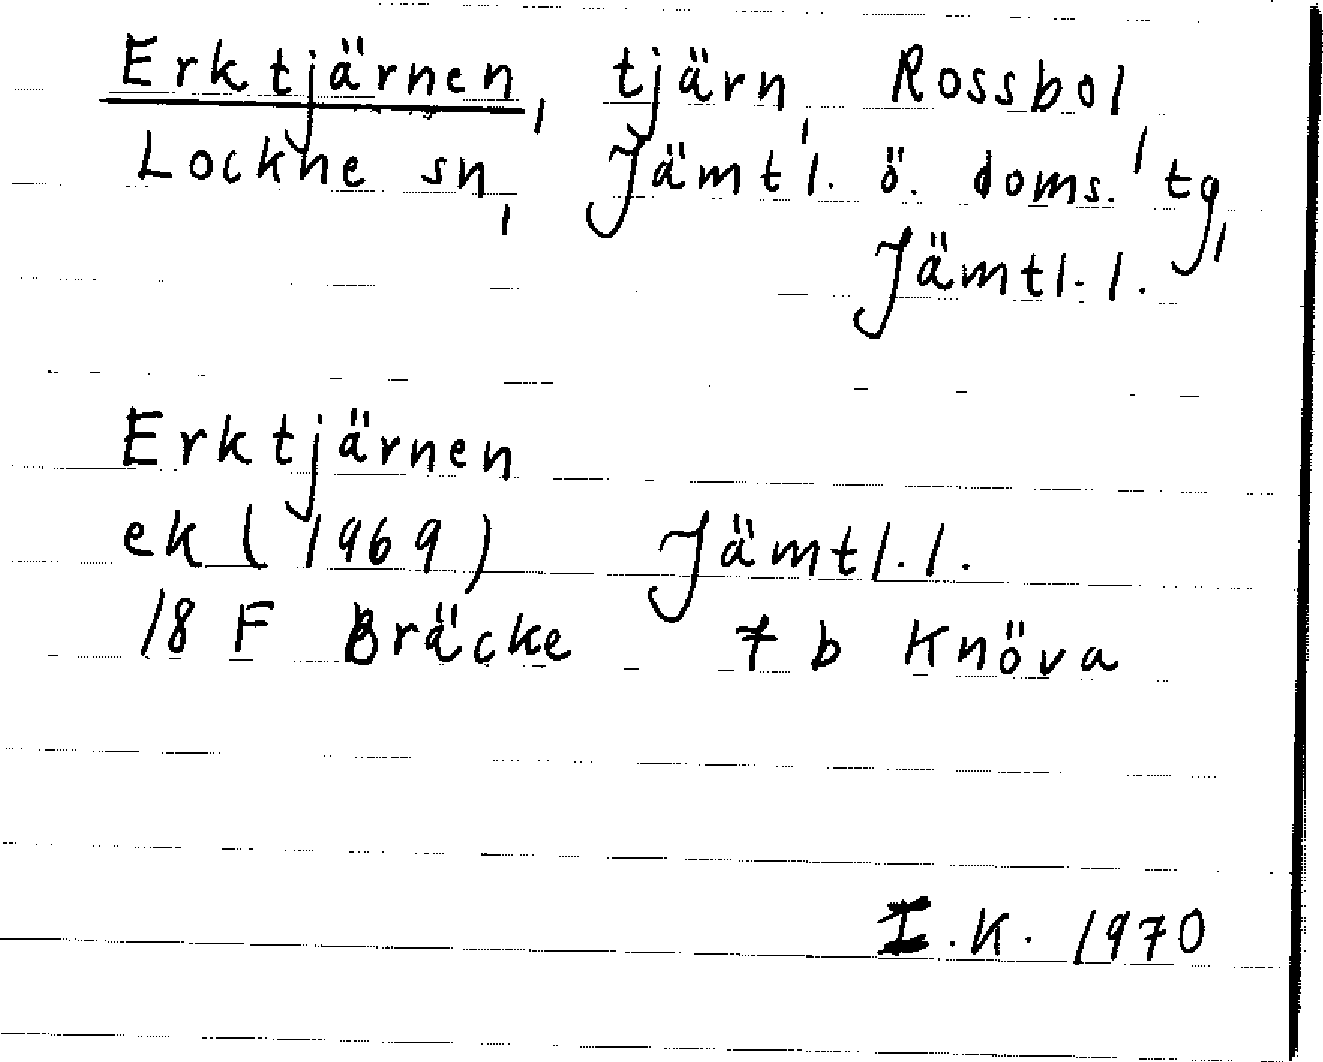 Erktjärnen, tjärn, Rossbol,
Lockne sn, Jämtl. ö. doms. tg,
Jämtl. l.
Erktjärnen
ek (1969) Jämtl. l.
18 F Bräcke 7 b Knöva
I.K. 1970